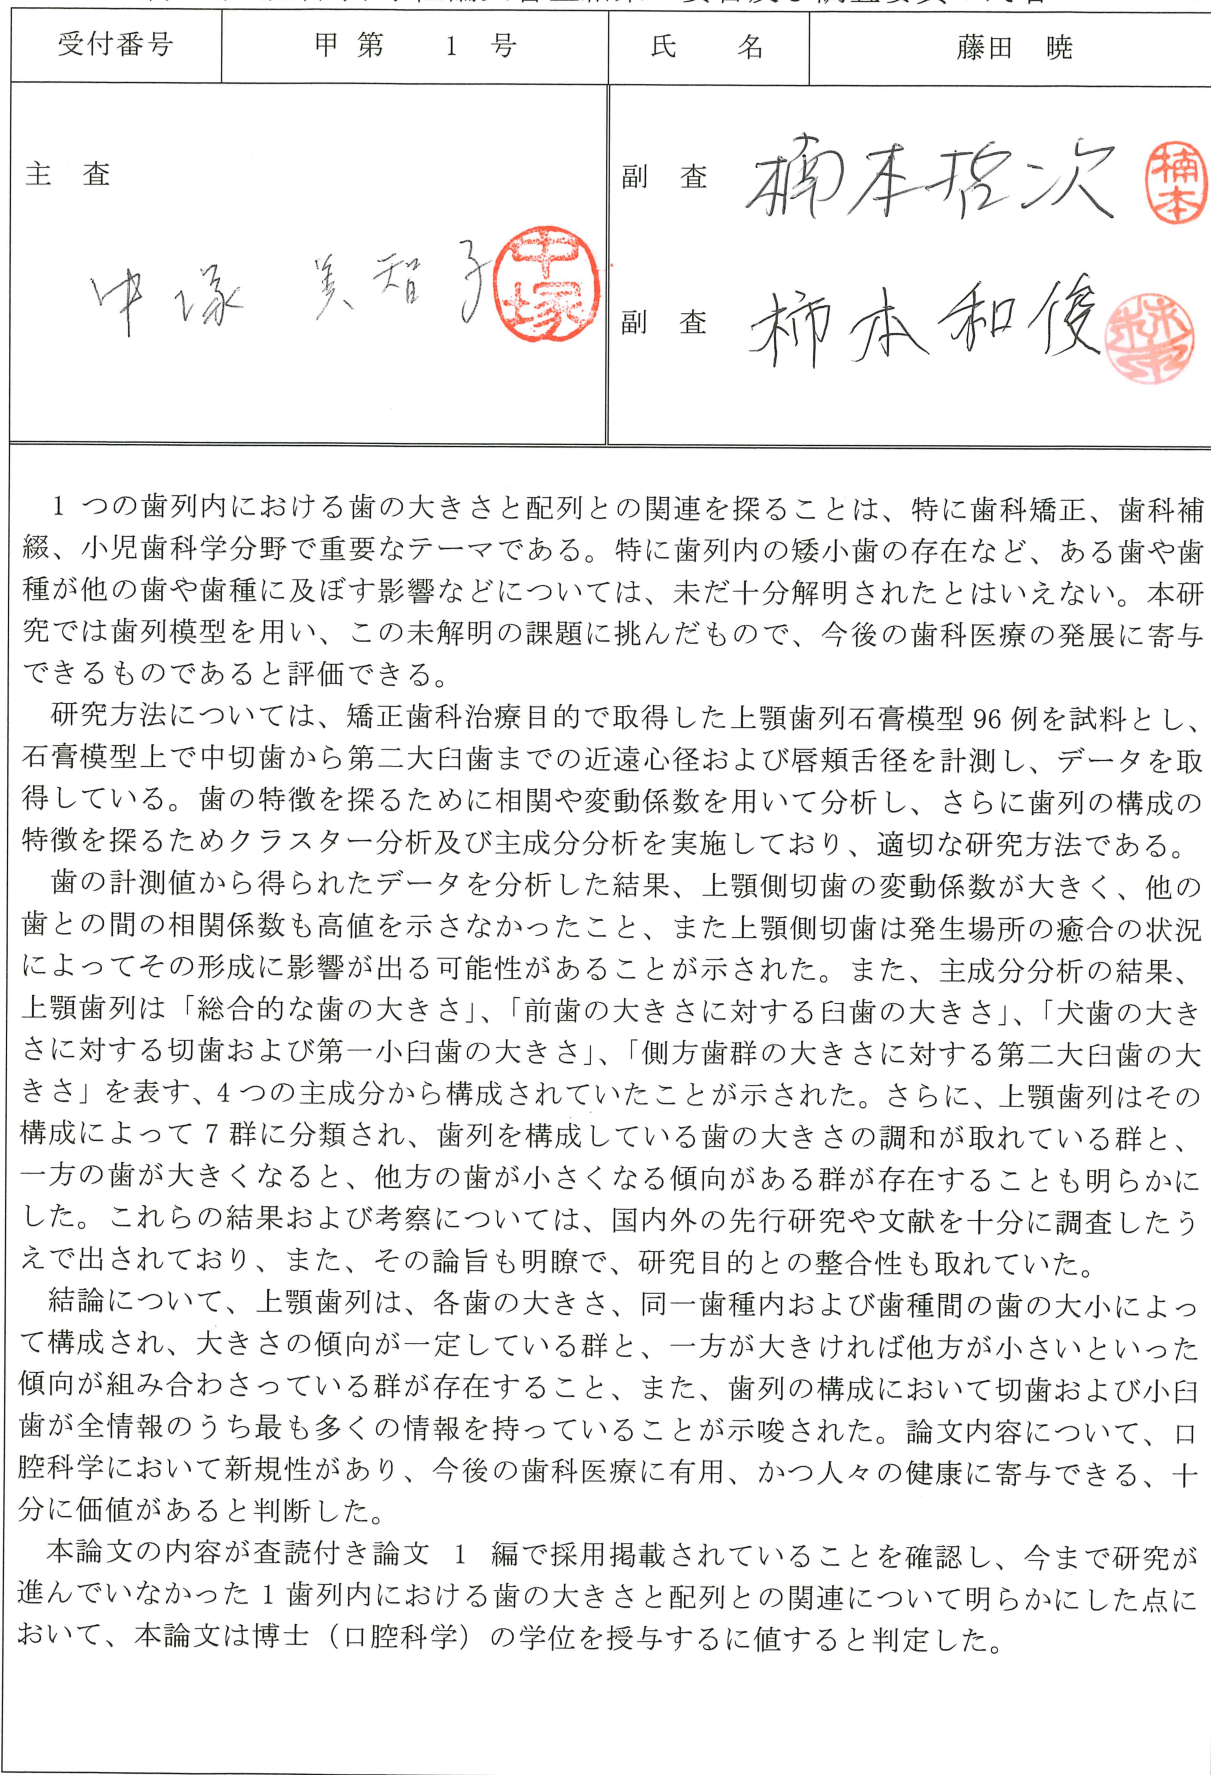 受付番号 甲 第 1 号 氏 名 藤田 暁
主 査
中塚 美智子
中塚
副 査 楠本哲次
楠本
副 査 柿本和俊
1 つの歯列内における歯の大きさと配列との関連を探ることは、特に歯科矯正、歯科補
綴、小児歯科学分野で重要なテーマである。特に歯列内の矮小歯の存在など、ある歯や歯
種が他の歯や歯種に及ぼす影響などについては、未だ十分解明されたとはいえない。本研
究では歯列模型を用い、この未解明の課題に挑んだもので、今後の歯科医療の発展に寄与
できるものであると評価できる。
研究方法については、矯正歯科治療目的で取得した上顎歯列石膏模型 96 例を試料とし、
石膏模型上で中切歯から第二大臼歯までの近遠心径および唇頬舌径を計測し、データを取
得している。歯の特徴を探るために相関や変動係数を用いて分析し、さらに歯列の構成の
特徴を探るためクラスター分析及び主成分分析を実施しており、適切な研究方法である。
歯の計測値から得られたデータを分析した結果、上顎側切歯の変動係数が大きく、他の
歯との間の相関係数も高値を示さなかったこと、また上顎側切歯は発生場所の癒合の状況
によってその形成に影響が出る可能性があることが示された。また、主成分分析の結果、
上顎歯列は「総合的な歯の大きさ」、「前歯の大きさに対する臼歯の大きさ」、「犬歯の大き
さに対する切歯および第一小臼歯の大きさ」、「側方歯群の大きさに対する第二大臼歯の大
きさ」を表す、4 つの主成分から構成されていたことが示された。さらに、上顎歯列はその
構成によって 7 群に分類され、歯列を構成している歯の大きさの調和が取れている群と、
一方の歯が大きくなると、他方の歯が小さくなる傾向がある群が存在することも明らかに
した。これらの結果および考察については、国内外の先行研究や文献を十分に調査したう
えで出されており、また、その論旨も明瞭で、研究目的との整合性も取れていた。
結論について、上顎歯列は、各歯の大きさ、同一歯種内および歯種間の歯の大小によっ
て構成され、大きさの傾向が一定している群と、一方が大きければ他方が小さいといった
傾向が組み合わさっている群が存在すること、また、歯列の構成において切歯および小臼
歯が全情報のうち最も多くの情報を持っていることが示唆された。論文内容について、口
腔科学において新規性があり、今後の歯科医療に有用、かつ人々の健康に寄与できる、十
分に価値があると判断した。
本論文の内容が査読付き論文 1 編で採用掲載されていることを確認し、今まで研究が
進んでいなかった 1 歯列内における歯の大きさと配列との関連について明らかにした点に
おいて、本論文は博士（口腔科学）の学位を授与するに値すると判定した。